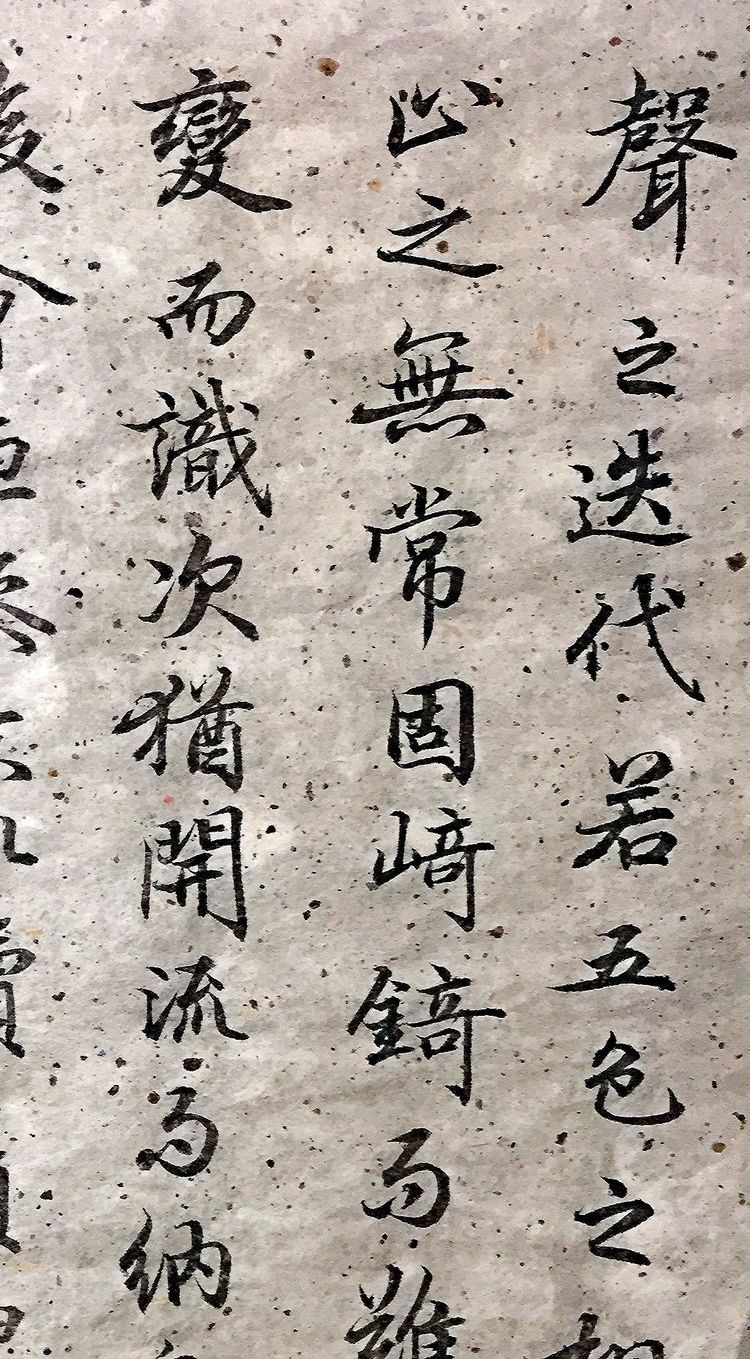 聲之迭代若五色之相
止之無常固崎錡而難
變而識次猶開流而納